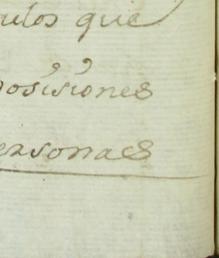 ulos que
osiciones
ersonas